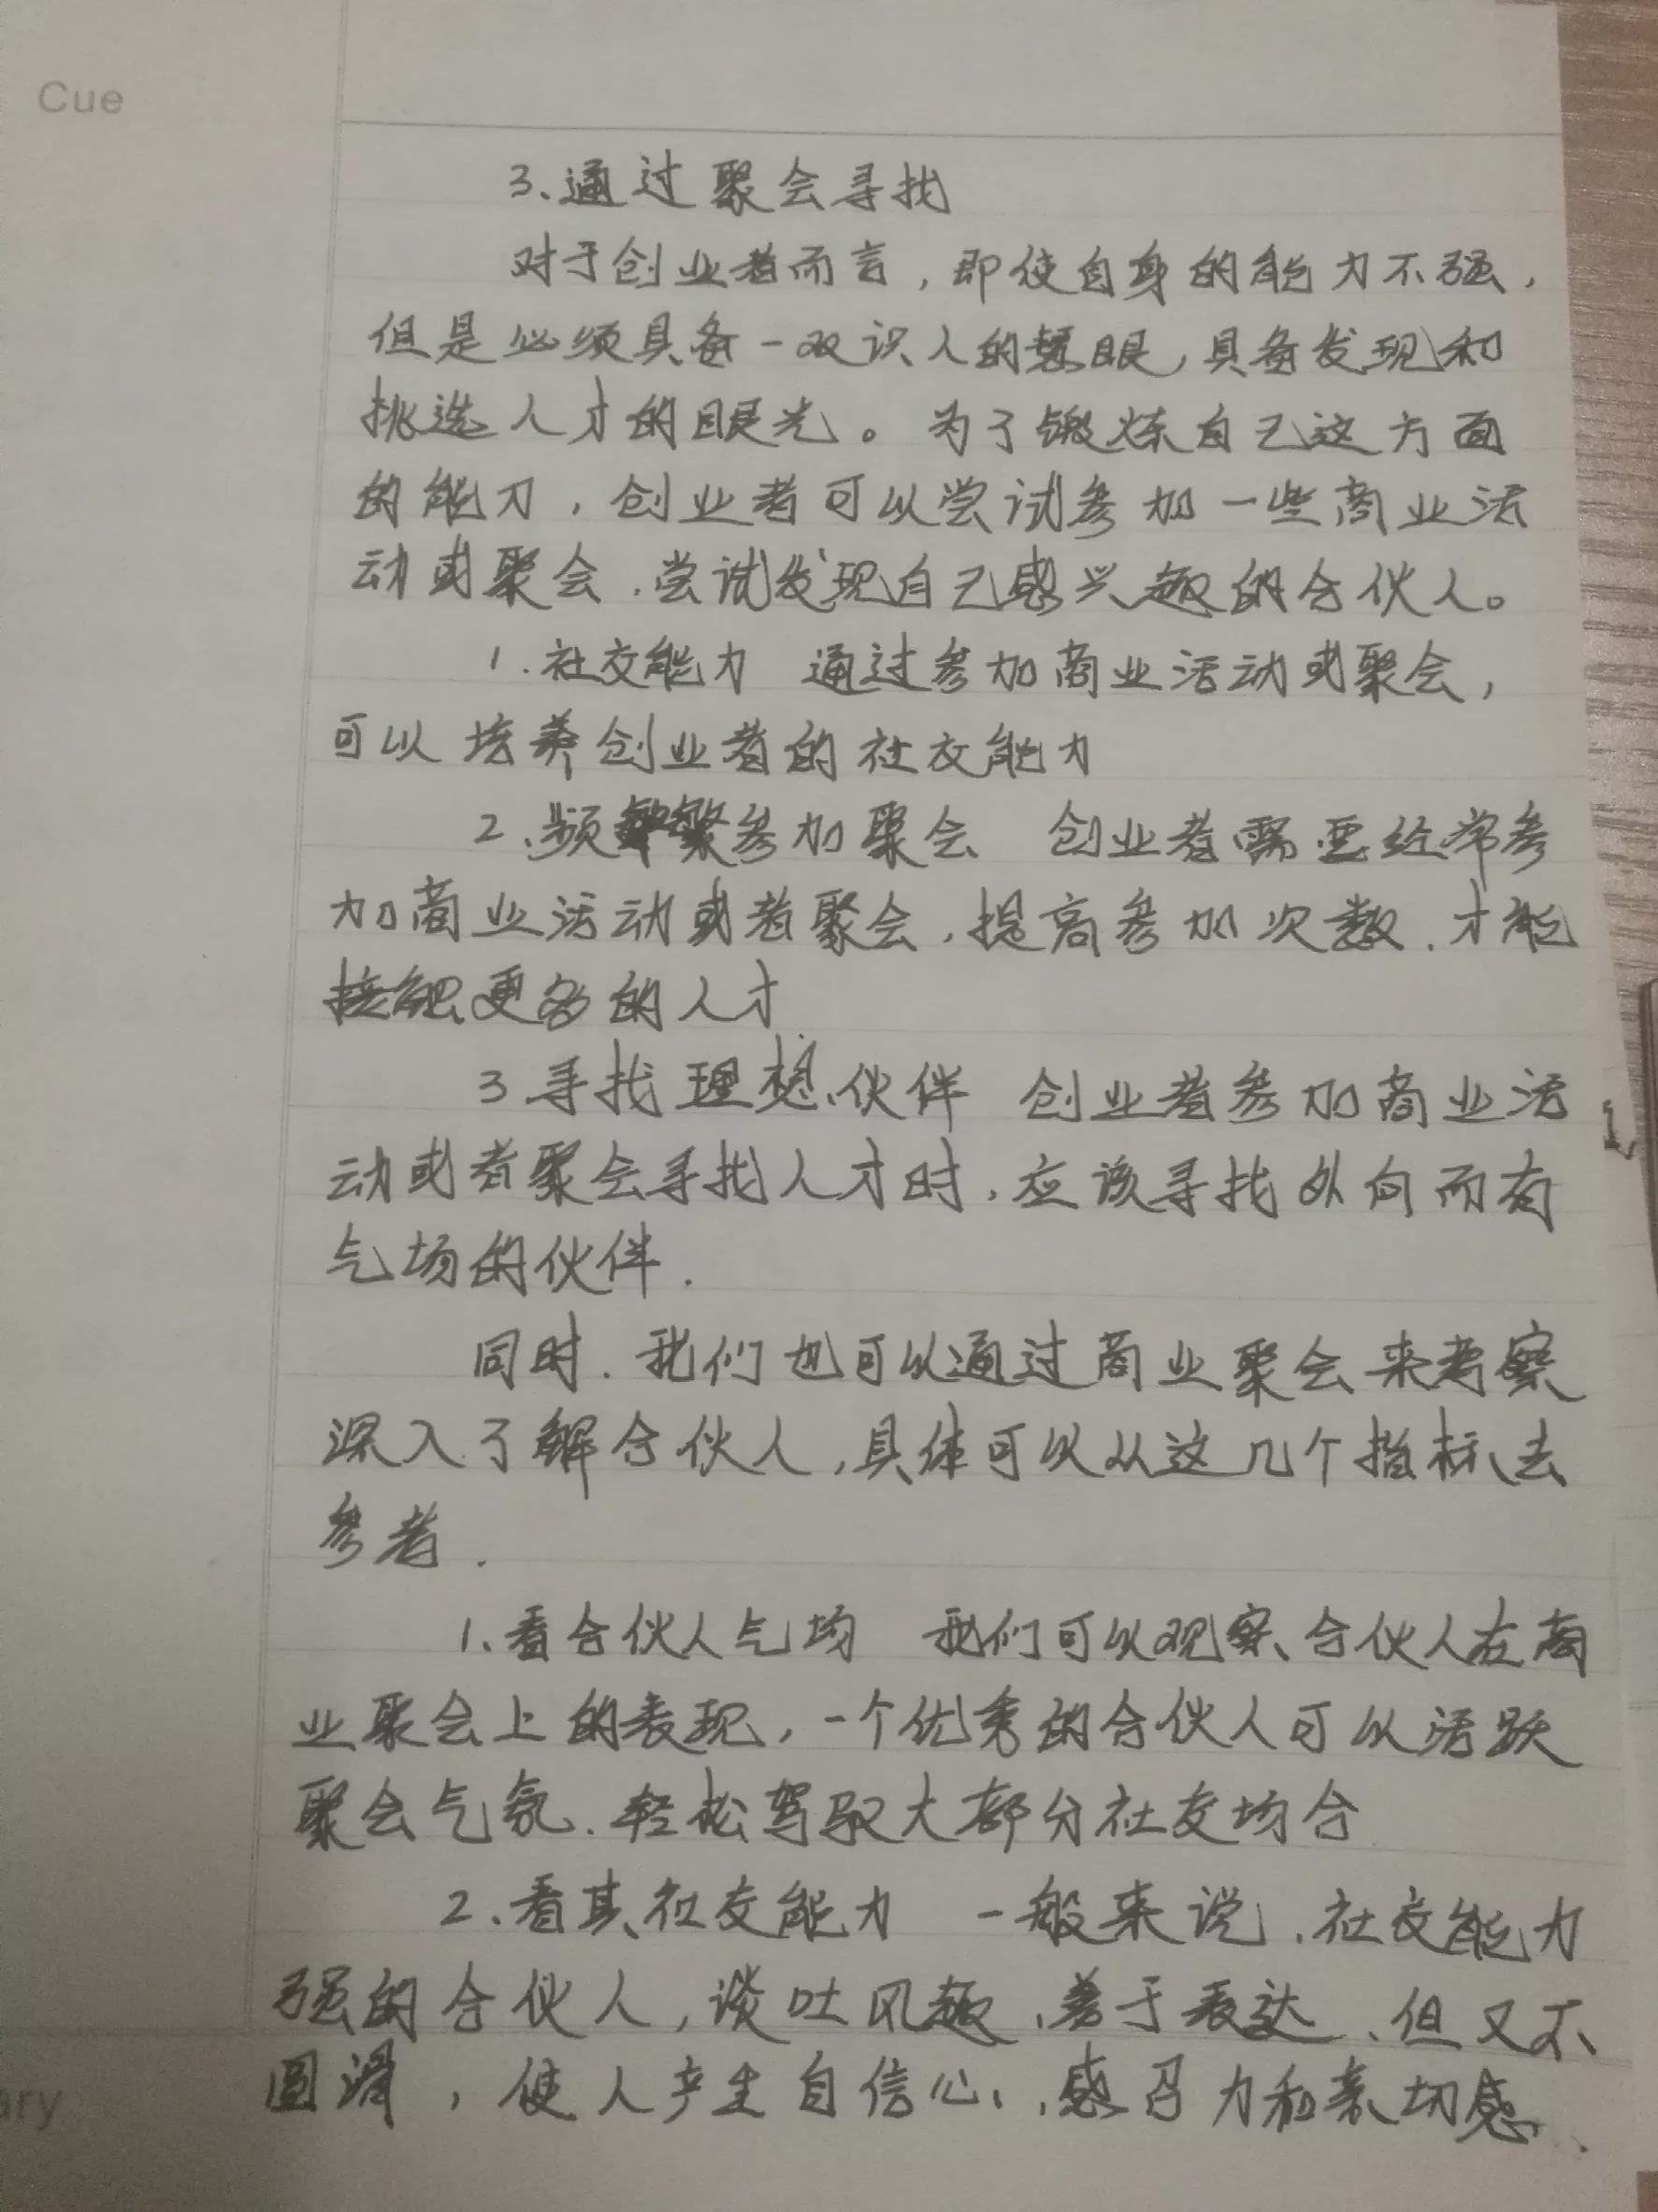 Cue
3、通过聚会寻找
对于创业者而言，即使自身的能力不强，
但是必须具备一双识人的慧眼，具备发现和
挑选人才的眼光。为了锻炼自己这方面
的能力，创业者可以尝试参加一些商业活
动或聚会，尝试发现自己感兴趣的合伙人。
1.社交能力 通过参加商业活动或聚会，
可以培养创业者的社交能力
2、频繁参加聚会 创业者需要经常参
加商业活动或者聚会，提高参加次数，才能
接触更多的人才
3.寻找理想伙伴 创业者参加商业活
动或者聚会寻找人才时，应该寻找外向而有
气场的伙伴.
同时，我们也可以通过商业聚会来考察
深入了解合伙人，具体可以从这几个指标去
参考.
1、看合伙人气场 我们可以观察合伙人在商
业聚会上的表现，一个优秀的合伙人可以活跃
聚会气氛，轻松驾驭大部分社交场合
2、看其社交能力 一般来说，社交能力
强的合伙人，谈吐风趣，善于表达，但又不
圆滑，使人产生自信心，感召力和亲切感
ary